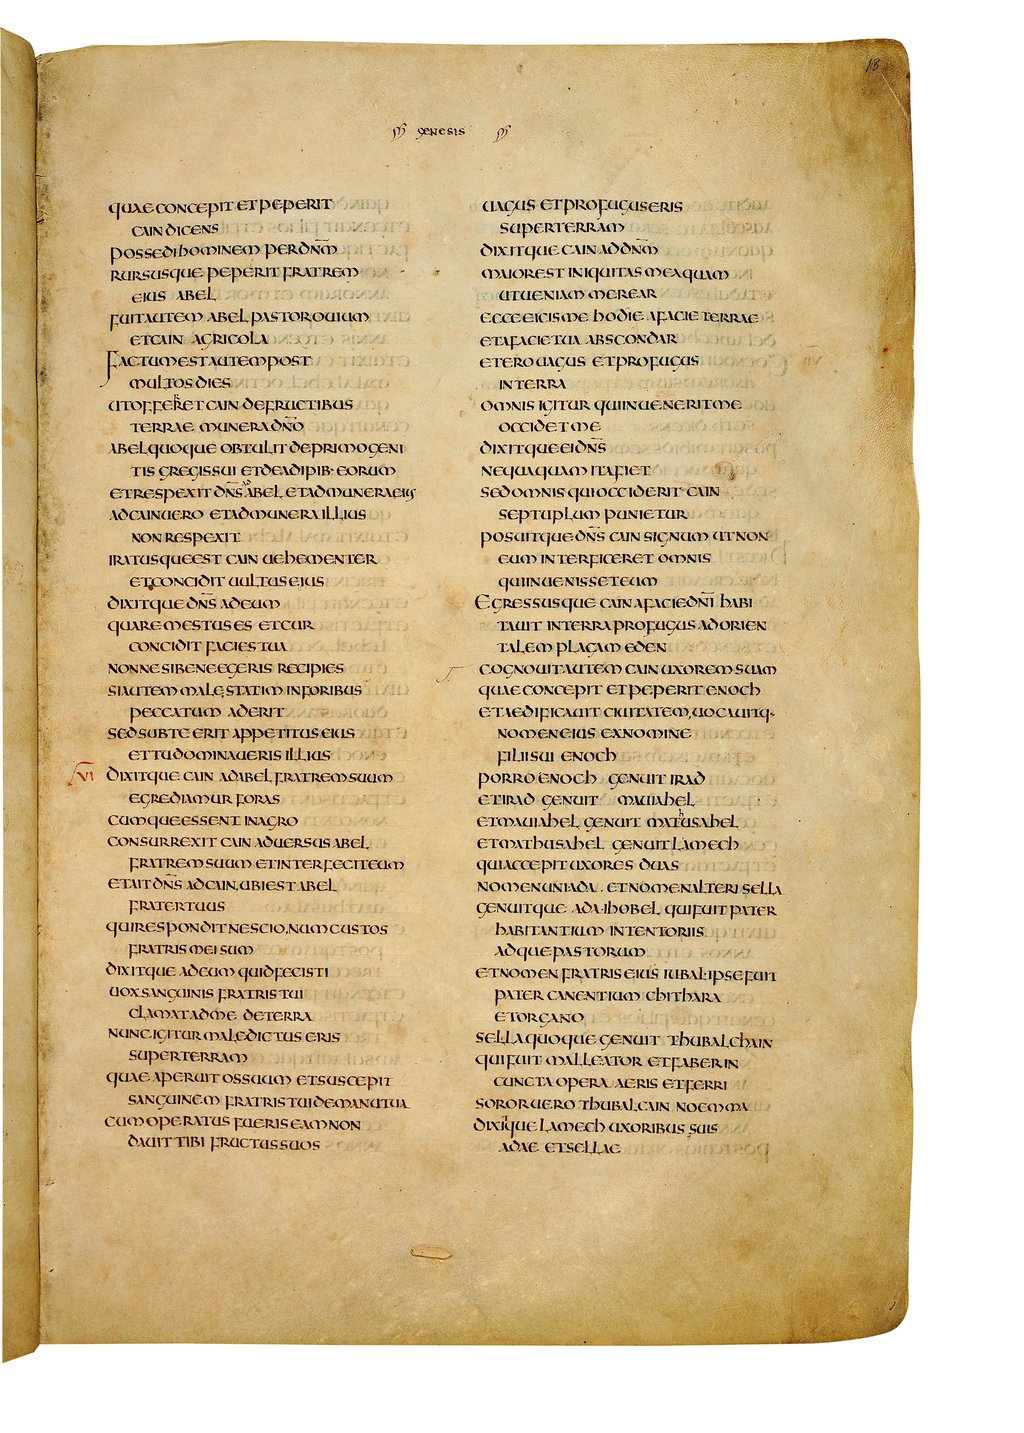 GENESIS
18
QUAE CONCEPIT ET PEPERIT
CAIN DICENS
POSSEDI HOMINEM PER DNM
RURSUSQUE PEPERIT FRATREM
EIUS ABEL
FUIT AUTEM ABEL PASTOR OUIUM
ET CAIN AGRICOLA
FACTUM EST AUTEM POST
MULTOS DIES
UT OFFERET CAIN DE FRUCTIBUS
TERRAE MUNERA DNO
ABEL QUOQUE OBTULIT DE PRIMOGENI
TIS GREGIS SUI ET DE ADIPIB· EORUM
ET RESPEXIT DNS AD ABEL ET AD MUNERA EIUS
AD CAIN UERO ET AD MUNERA ILLIUS
NON RESPEXIT
IRATUSQUE EST CAIN UEHEMENTER
ET CONCIDIT UULTUS EIUS
DIXITQUE DNS AD EUM
QUARE MESTUS ES ET CUR
CONCIDIT FACIES TUA
NONNE SI BENE EGERIS RECIPIES
SI AUTEM MALE, STATIM IN FORIBUS
PECCATUM ADERIT
SED SUB TE ERIT APPETITUS EIUS
ET TU DOMINAUERIS ILLIUS
VI DIXITQUE CAIN AD ABEL FRATREM SUUM
EGREDIAMUR FORAS
CUMQUE ESSENT IN AGRO
CONSURREXIT CAIN ADUERSUS ABEL
FRATREM SUUM ET INTERFECIT EUM
ET AIT DNS AD CAIN, UBI EST ABEL
FRATER TUUS
QUI RESPONDIT NESCIO, NUM CUSTOS
FRATRIS MEI SUM
DIXITQUE AD EUM QUID FECISTI
UOX SANGUINIS FRATRIS TUI
CLAMAT AD ME DE TERRA
NUNC IGITUR MALEDICTUS ERIS
SUPER TERRAM
QUAE APERUIT OS SUUM ET SUSCEPIT
SANGUINEM FRATRIS TUI DE MANU TUA
CUM OPERATUS FUERIS EAM NON
DAUIT TIBI FRUCTUS SUOS
UAGUS ET PROFUGUS ERIS
SUPER TERRAM
DIXITQUE CAIN AD DNM
MAIOR EST INIQUITAS MEA QUAM
UT UENIAM MEREAR
ECCE EICIS ME HODIE A FACIE TERRAE
ET A FACIE TUA ABSCONDAR
ET ERO UAGUS ET PROFUGUS
IN TERRA
OMNIS IGITUR QUI INUENERIT ME
OCCIDET ME
DIXITQUE EI DNS
NEQUAQUAM ITA FIET
SED OMNIS QUI OCCIDERIT CAIN
SEPTUPLUM PUNIETUR
POSUITQUE DNS CAIN SIGNUM UT NON
EUM INTERFICERET OMNIS
QUI INUENISSET EUM
EGRESSUSQUE CAIN A FACIE DNI HABI
TAUIT IN TERRA PROFUGUS AD ORIEN
TALEM PLAGAM EDEN
COGNOUIT AUTEM CAIN UXOREM SUAM
QUAE CONCEPIT ET PEPERIT ENOCH
ET AEDIFICAUIT CIUITATEM, UOCAUITQ·
NOMEN EIUS EX NOMINE
FILII SUI ENOCH
PORRO ENOCH GENUIT IRAD
ET IRAD GENUIT MAUIAHEL
ET MAUIAHEL GENUIT MATHUSAHEL
ET MATHUSAHEL GENUIT LAMECH
QUI ACCEPIT UXORES DUAS
NOMEN UNI ADA, ET NOMEN ALTERI SELLA
GENUITQUE ADA IHOBEL QUI FUIT PATER
HABITANTIUM IN TENTORIIS
ADQUE PASTORUM
ET NOMEN FRATRIS EIUS IUBAL IPSE FUIT
PATER CANENTIUM CHITHARA
ET ORGANO
SELLA QUOQUE GENUIT THUBALCHAIN
QUI FUIT MALLEATOR ET FABER IN
CUNCTA OPERA AERIS ET FERRI
SOROR UERO THUBALCAIN NOEMMA
DIXITQUE LAMECH UXORIBUS SUIS
ADAE ET SELLAE